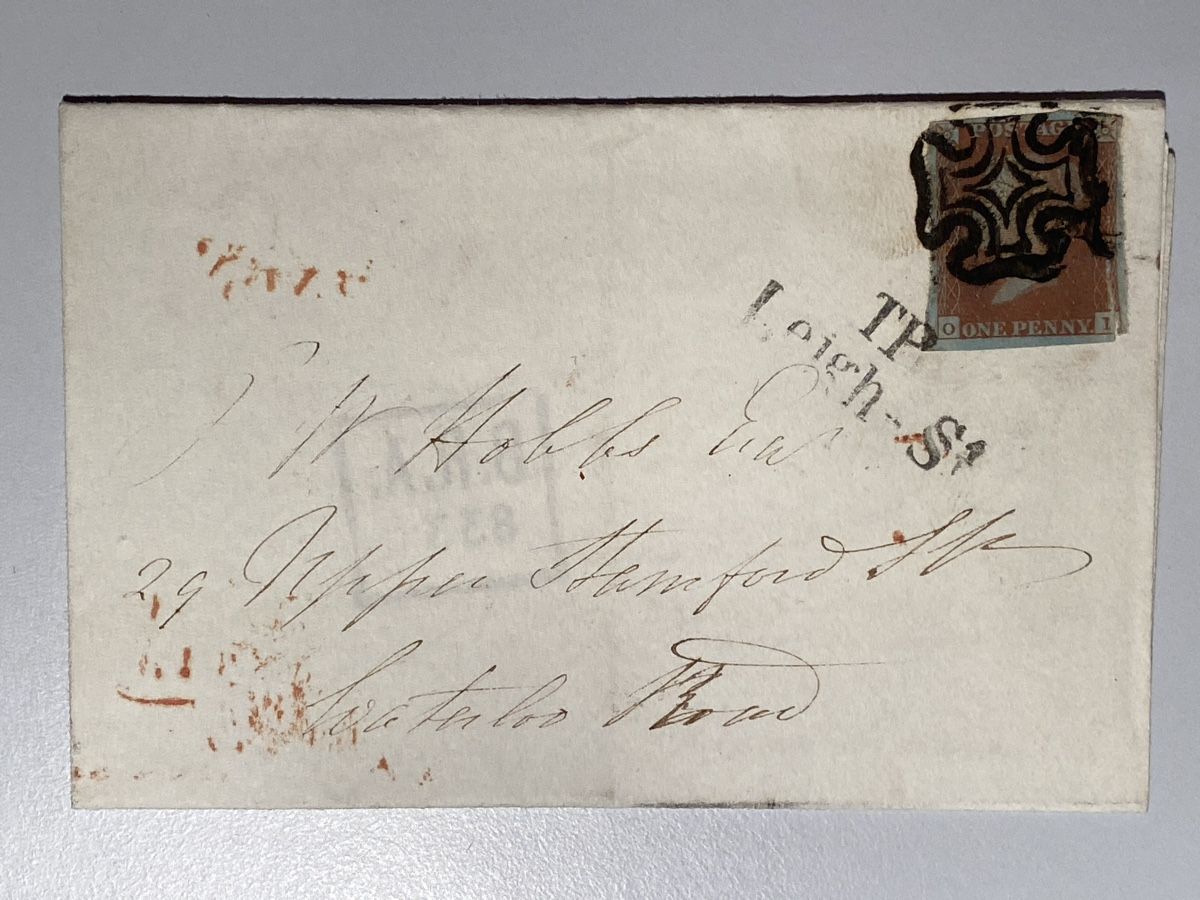 POSTAGE
O ONE PENNY. I
TP
Leigh-St
W Hobbs Esq
29 Upper Stamford St
Waterloo Road